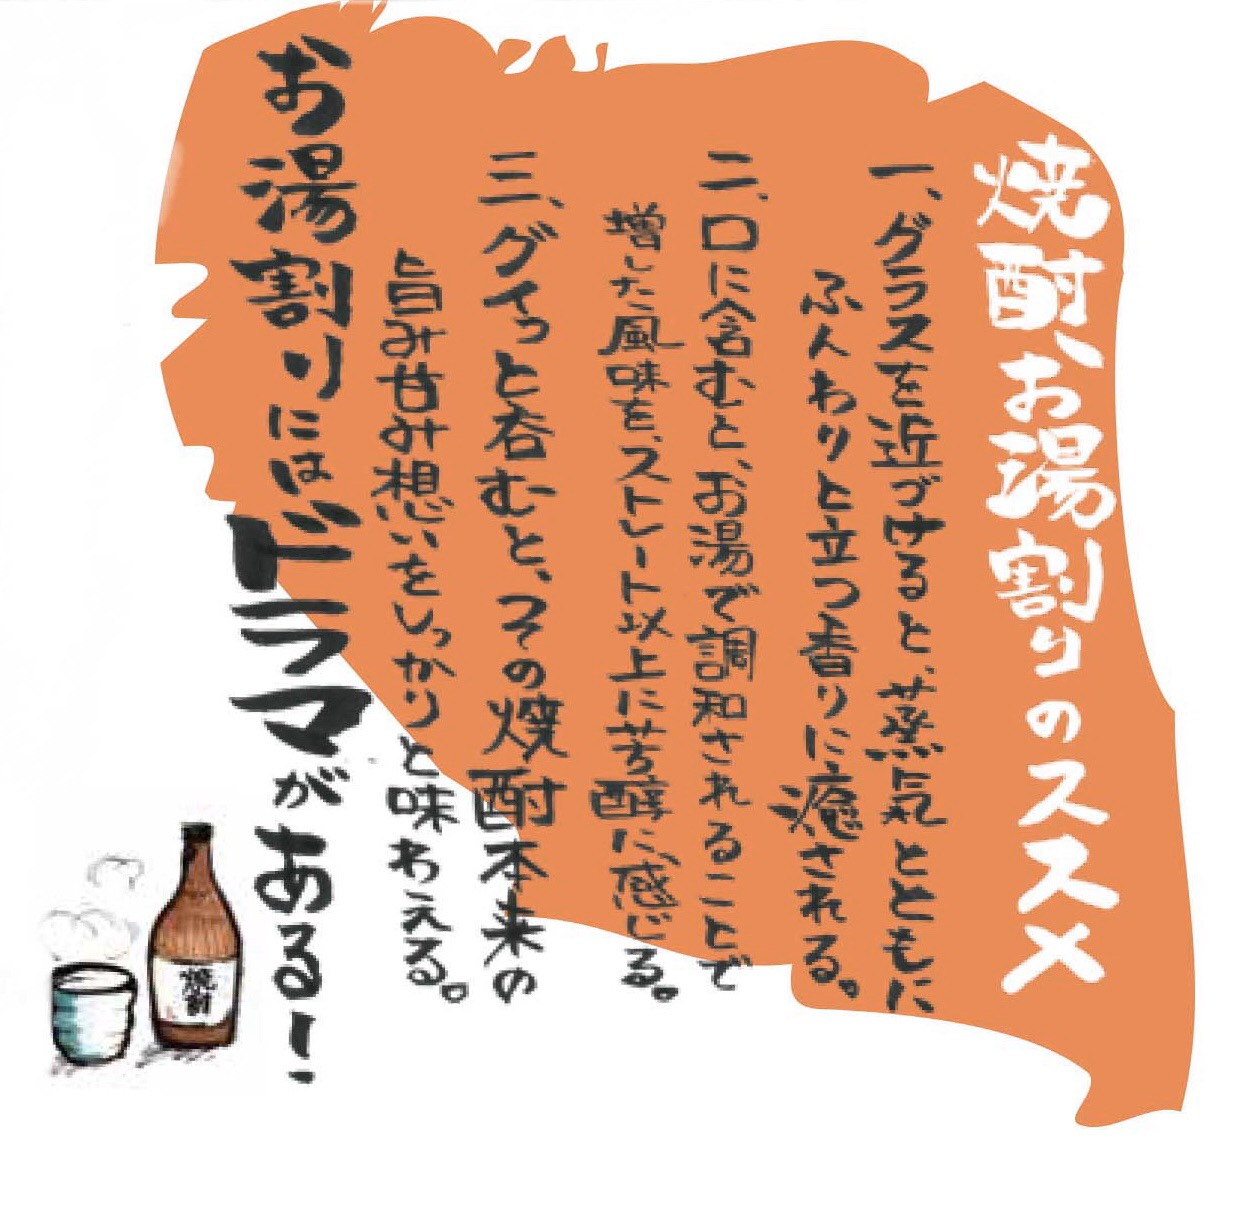 焼酎、お湯割りのススメ
一、グラスを近づけると、蒸気とともに
ふんわりと立つ香りに癒される。
二、口に含むと、お湯で調和されることで
増した風味を、ストレート以上に芳醇に感じる。
三、グイっと呑むと、その焼酎本来の
旨み甘み想いをしっかりと味わえる。
お湯割りにはドラマがある!